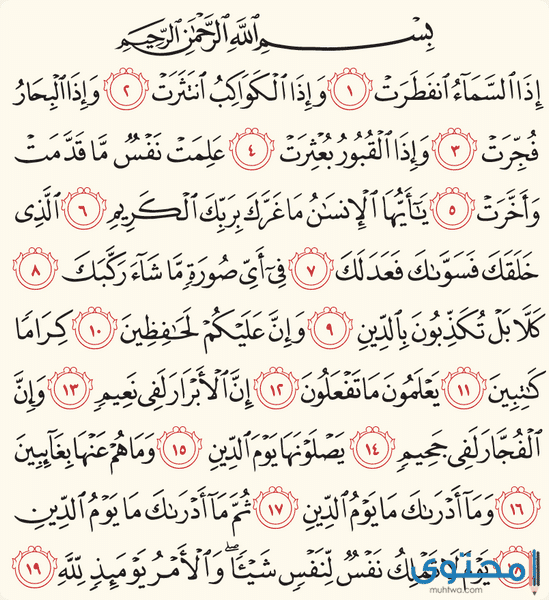 بِسْمِ ٱللَّهِ ٱلرَّحْمَٰنِ ٱلرَّحِيمِ
إِذَا ٱلسَّمَآءُ ٱنفَطَرَتْ ١ وَإِذَا ٱلْكَوَاكِبُ ٱنتَثَرَتْ ٢ وَإِذَا ٱلْبِحَارُ
فُجِّرَتْ ٣ وَإِذَا ٱلْقُبُورُ بُعْثِرَتْ ٤ عَلِمَتْ نَفْسٌ مَّا قَدَّمَتْ
وَأَخَّرَتْ ٥ يَٰٓأَيُّهَا ٱلْإِنسَٰنُ مَا غَرَّكَ بِرَبِّكَ ٱلْكَرِيمِ ٦ ٱلَّذِى
خَلَقَكَ فَسَوَّىٰكَ فَعَدَلَكَ ٧ فِىٓ أَىِّ صُورَةٍ مَّا شَآءَ رَكَّبَكَ ٨
كَلَّا بَلْ تُكَذِّبُونَ بِٱلدِّينِ ٩ وَإِنَّ عَلَيْكُمْ لَحَٰفِظِينَ ١٠ كِرَامًا
كَٰتِبِينَ ١١ يَعْلَمُونَ مَا تَفْعَلُونَ ١٢ إِنَّ ٱلْأَبْرَارَ لَفِى نَعِيمٍ ١٣ وَإِنَّ
ٱلْفُجَّارَ لَفِى جَحِيمٍ ١٤ يَصْلَوْنَهَا يَوْمَ ٱلدِّينِ ١٥ وَمَا هُمْ عَنْهَا بِغَآئِبِينَ
١٦ وَمَآ أَدْرَىٰكَ مَا يَوْمُ ٱلدِّينِ ١٧ ثُمَّ مَآ أَدْرَىٰكَ مَا يَوْمُ ٱلدِّينِ
١٨ يَوْمَ لَا تَمْلِكُ نَفْسٌ لِّنَفْسٍ شَيْـًٔا ۖ وَٱلْأَمْرُ يَوْمَئِذٍ لِّلَّهِ ١٩
محتوى
muhtwa.com